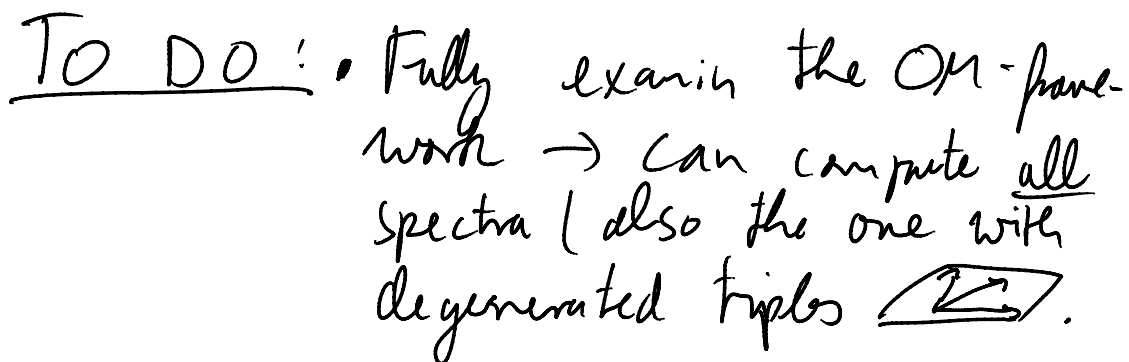 TO DO: • Fully examin the OM-frame-
work → can compute all
spectra (also the one with
degenerated triples .